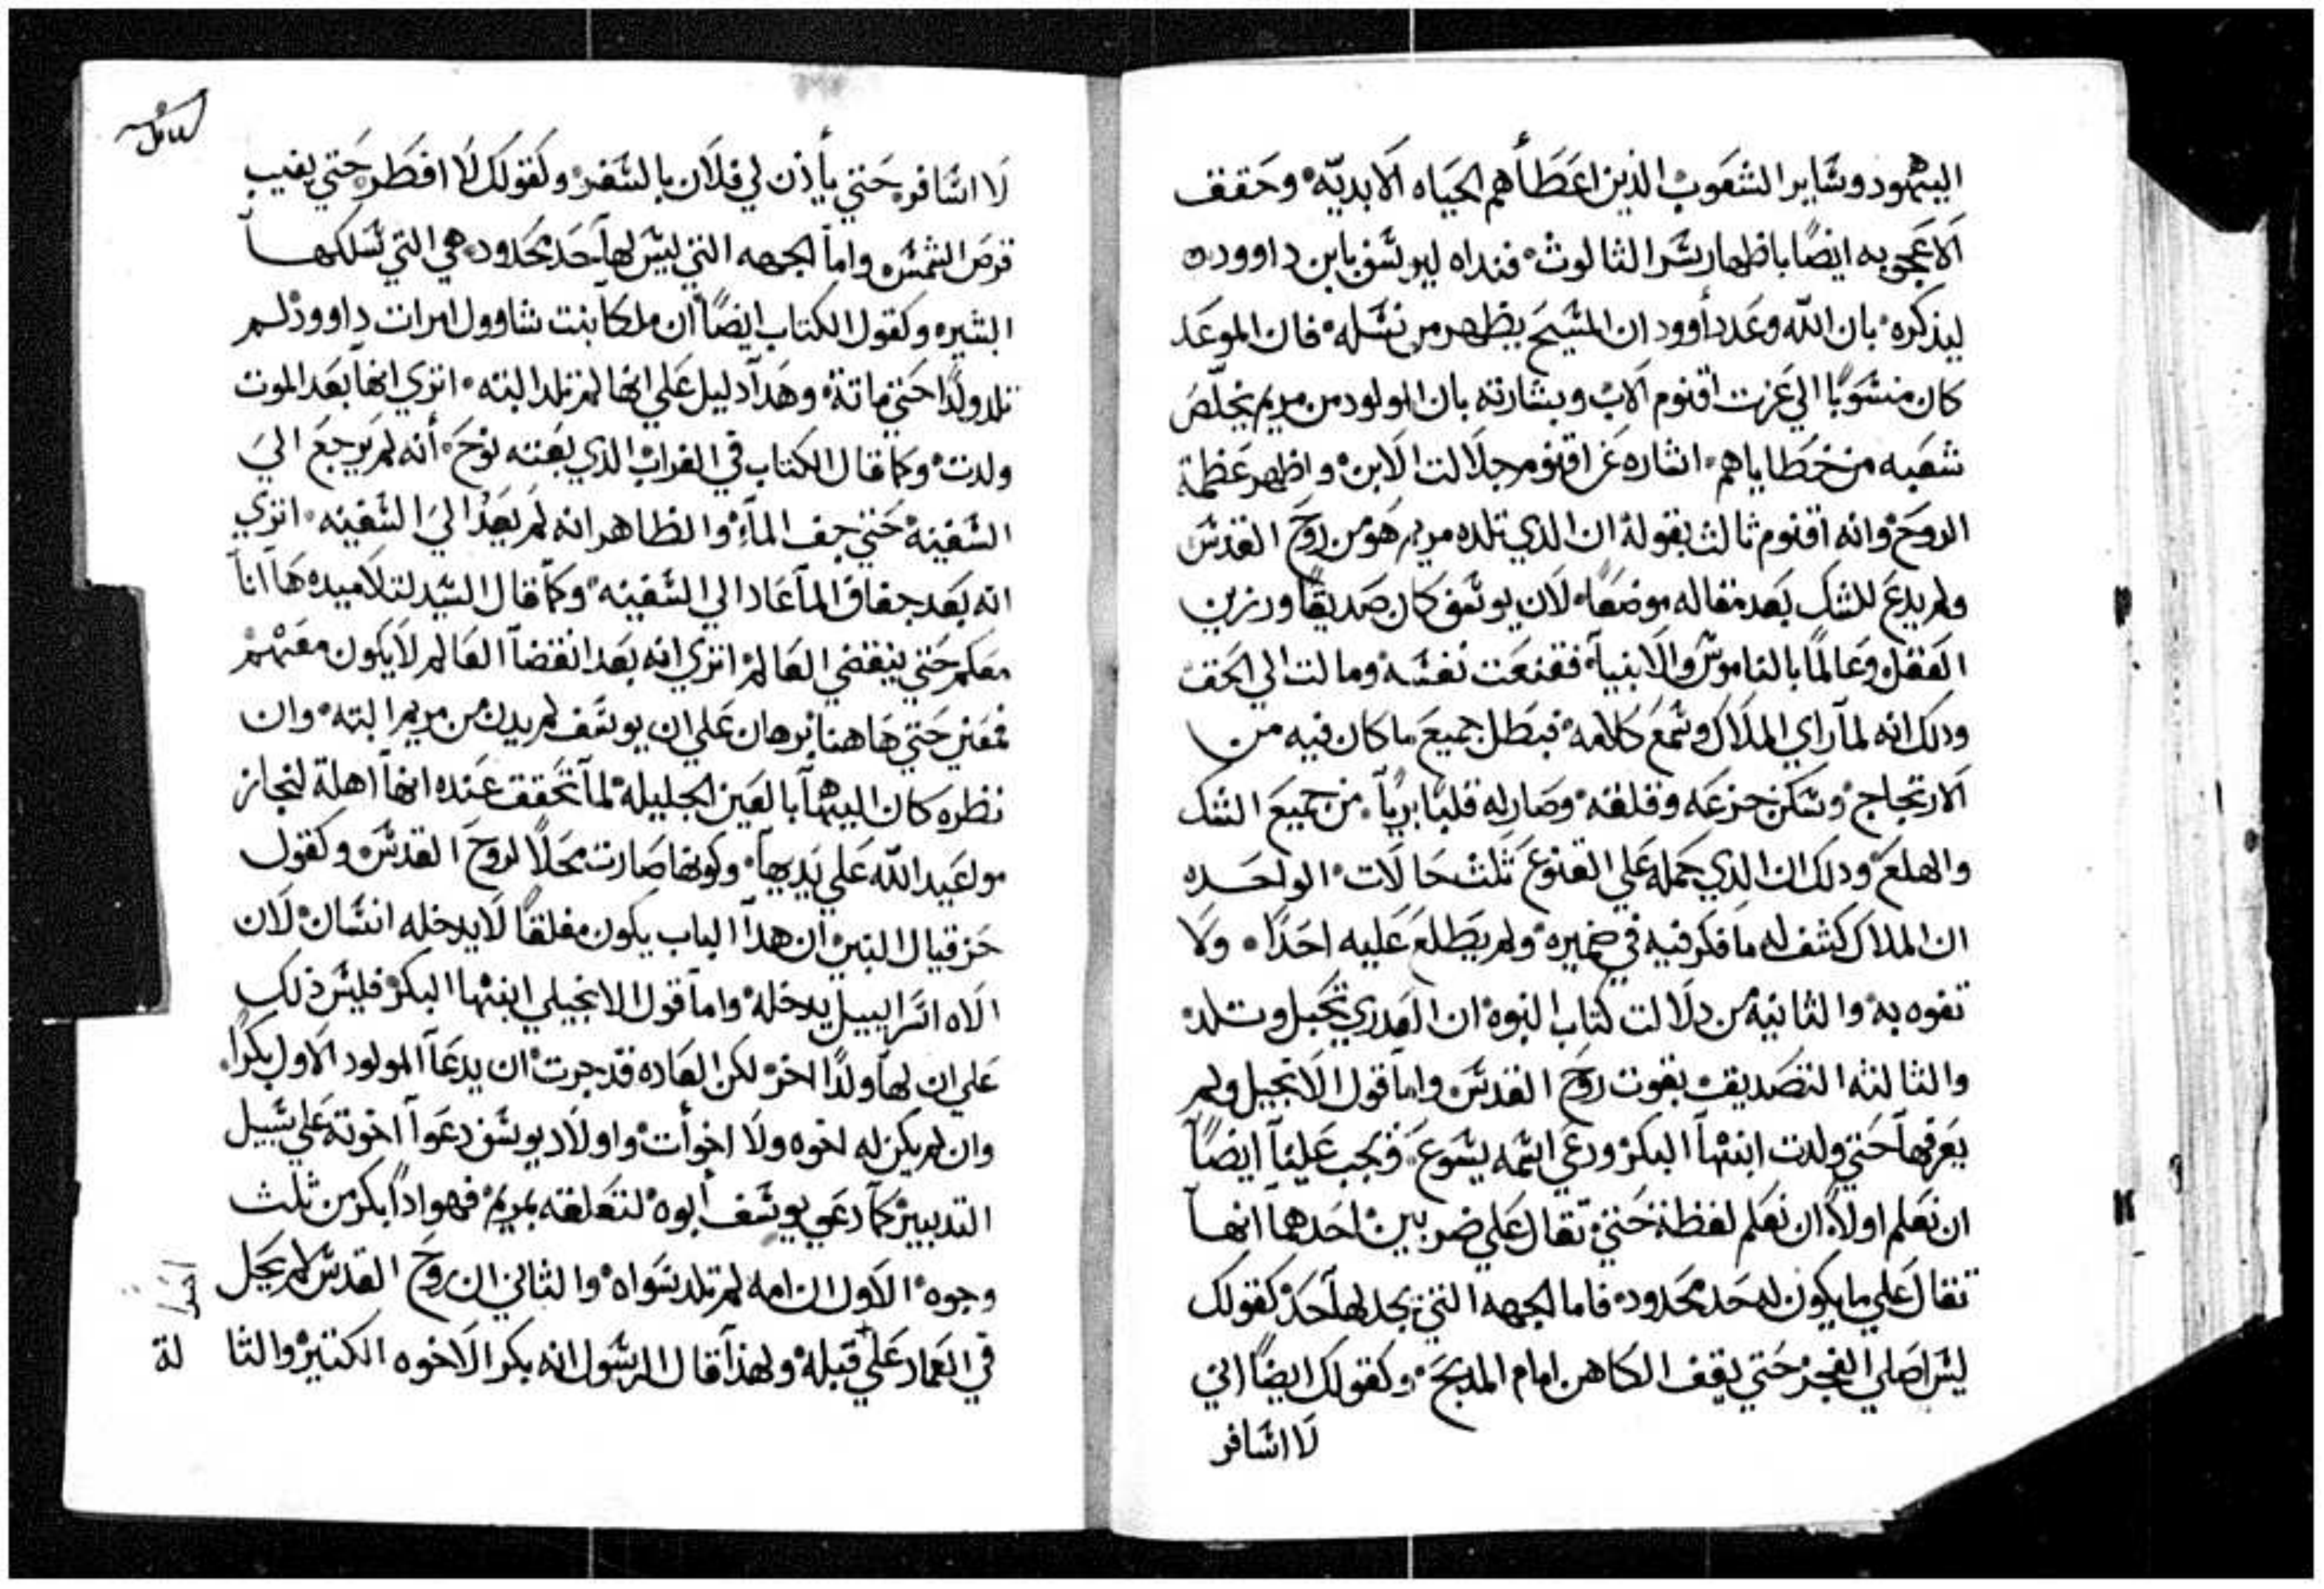 اليهود وساير الشعوب الذين اعطاهم الحياه الابديه وحقق
الاعجوبه ايضًا باظهار سر الثالوث فنداه ليوسف بابن داوود
ليذكره بان الله وعد دأوود ان المسيح يظهر من نسله فان الموعد
كان منسوبًا الي عزت اقنوم الاب وبشارته بان المولود من مريم يخلّص
شعبه من خطاياهم اشاره عن اقنوم جلالت الابن واظهر عظمة
الروح وانه اقنوم ثالث بقوله ان الذي تلده مريم هو من روح القدس
ولم يدع للشك بعد مقاله موضعًا لان يوسف كان صديقًا ورزين
العقل وعالمًا بالناموس والانبيآ فقنعت نفسه ومالت الي الحق
ودلك انه لمآ راي الملاك وسمع كلامه فبطل جميع ما كان فيه من
الارتجاج وسكن جزعه وقلقه وصار له قلبًا بريًا من جميع الشك
والهلع ودلك ان الذي حمله علي القنوع ثلث حالات الواحده
ان الملاك كشف له ما فكر فيه في ضميره ولم يطلع عليه احدًا ولا
تفوه به والثانيه من دلالت كتاب النبوه ان العدري تحبل وتلد
والثالثه التصديق بقوت روح القدس واما قول الانجيل ولم
يعرفهآ حتي ولدت ابنهآ البكر ودعي اسمه يسوع فيجب علينآ ايضًا
ان نعلم اولًا ان نعلم لفظة حتي تقال علي ضربين احدهمآ انهآ
تقال علي ما يكون له حد محدود فاما الجهه التي يحد لهآ حد كقولك
ليس اصلي الفجر حتي يقف الكاهن امام المدبح وكقولك ايضًا اني
لا اسافر
لا اسافر حتي يأذن لي فلان بالسفر وكقولك لا افطر حتي يغيب
قرص الشمس واما الجهه التي ليس لهآ حد محدود هي التي تسلكهآ
السيره وكقول الكتاب ايضًا ان ملكآ بنت شاوول امرات داوود لم
تلد ولدًا حتي ماتة وهدآ دليل علي انها لم تلد البته اتري انهآ بعد الموت
ولدت وكما قال الكتاب في الغراب الذي بعثه نوح أنه لم يرجع الي
السفينه حتي جف المآء والظاهر انه لم يعد الي السفينه اتري
انه بعد جفاف المآ عاد الي السفينه وكمآ قال السيد لتلاميده هآ انآ
معكم حتي ينقضي العالم اتري انه بعد انقضآ العالم لا يكون معهم
فمعني حتي هاهنا برهان علي ان يوسف لم يدن من مريم البته وان
نظره كان اليهآ بالعين الجليله لمآ تحقق عنده انهآ اهلة لنجاز
مواعيد الله علي يديهآ وكونها صارت محلًا لروح القدس وكقول
حزقيال النبي ان هدآ الباب يكون مغلقًا لا يدخله انسان لان
الاه اسراييل يدخله واما قول الانجيلي ابنها البكر فليس ذلك
علي ان لهآ ولدًا اخر لكن العاده قد جرت ان يدعآ المولود الاول بكرًا
وان لم يكن له اخوه ولا اخوأت واولاد يوسف دعوآ اخوته علي سبيل
التدبير كمآ دعي يوسف أبوه لتعلقه بمريم فهو اداً بكر من ثلث
وجوه الاول ان امه لم تلد سواه والثاني ان روح القدس لم يحل
في العماد علي قبله ولهذآ قال الرسول انه بكر الاخوه الكتير والثا لة